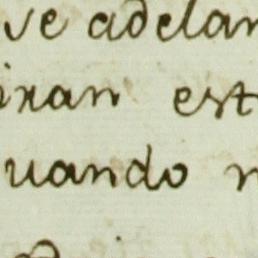 ve adelan
iran est
uando n